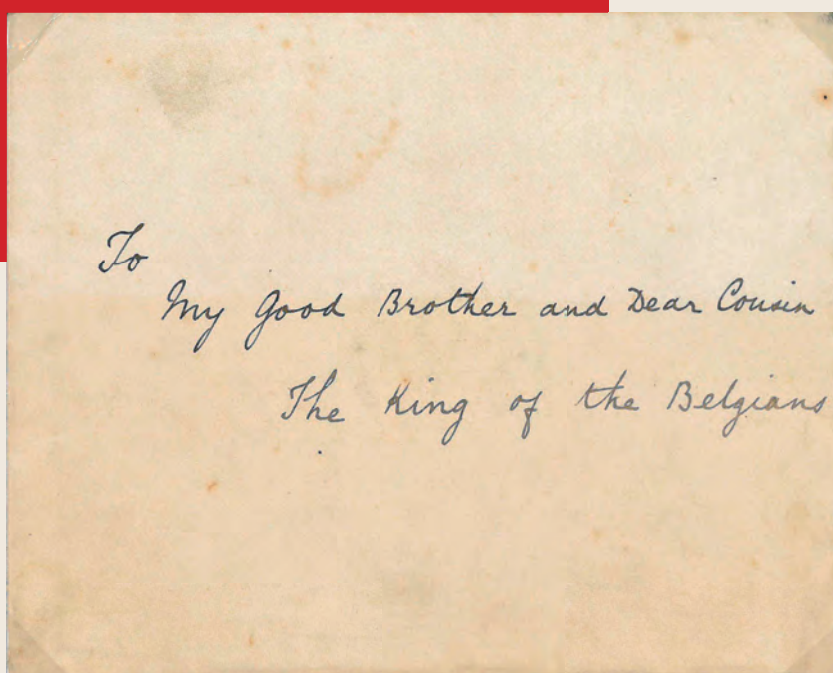 To
My Good Brother and Dear Cousin
The King of the Belgians